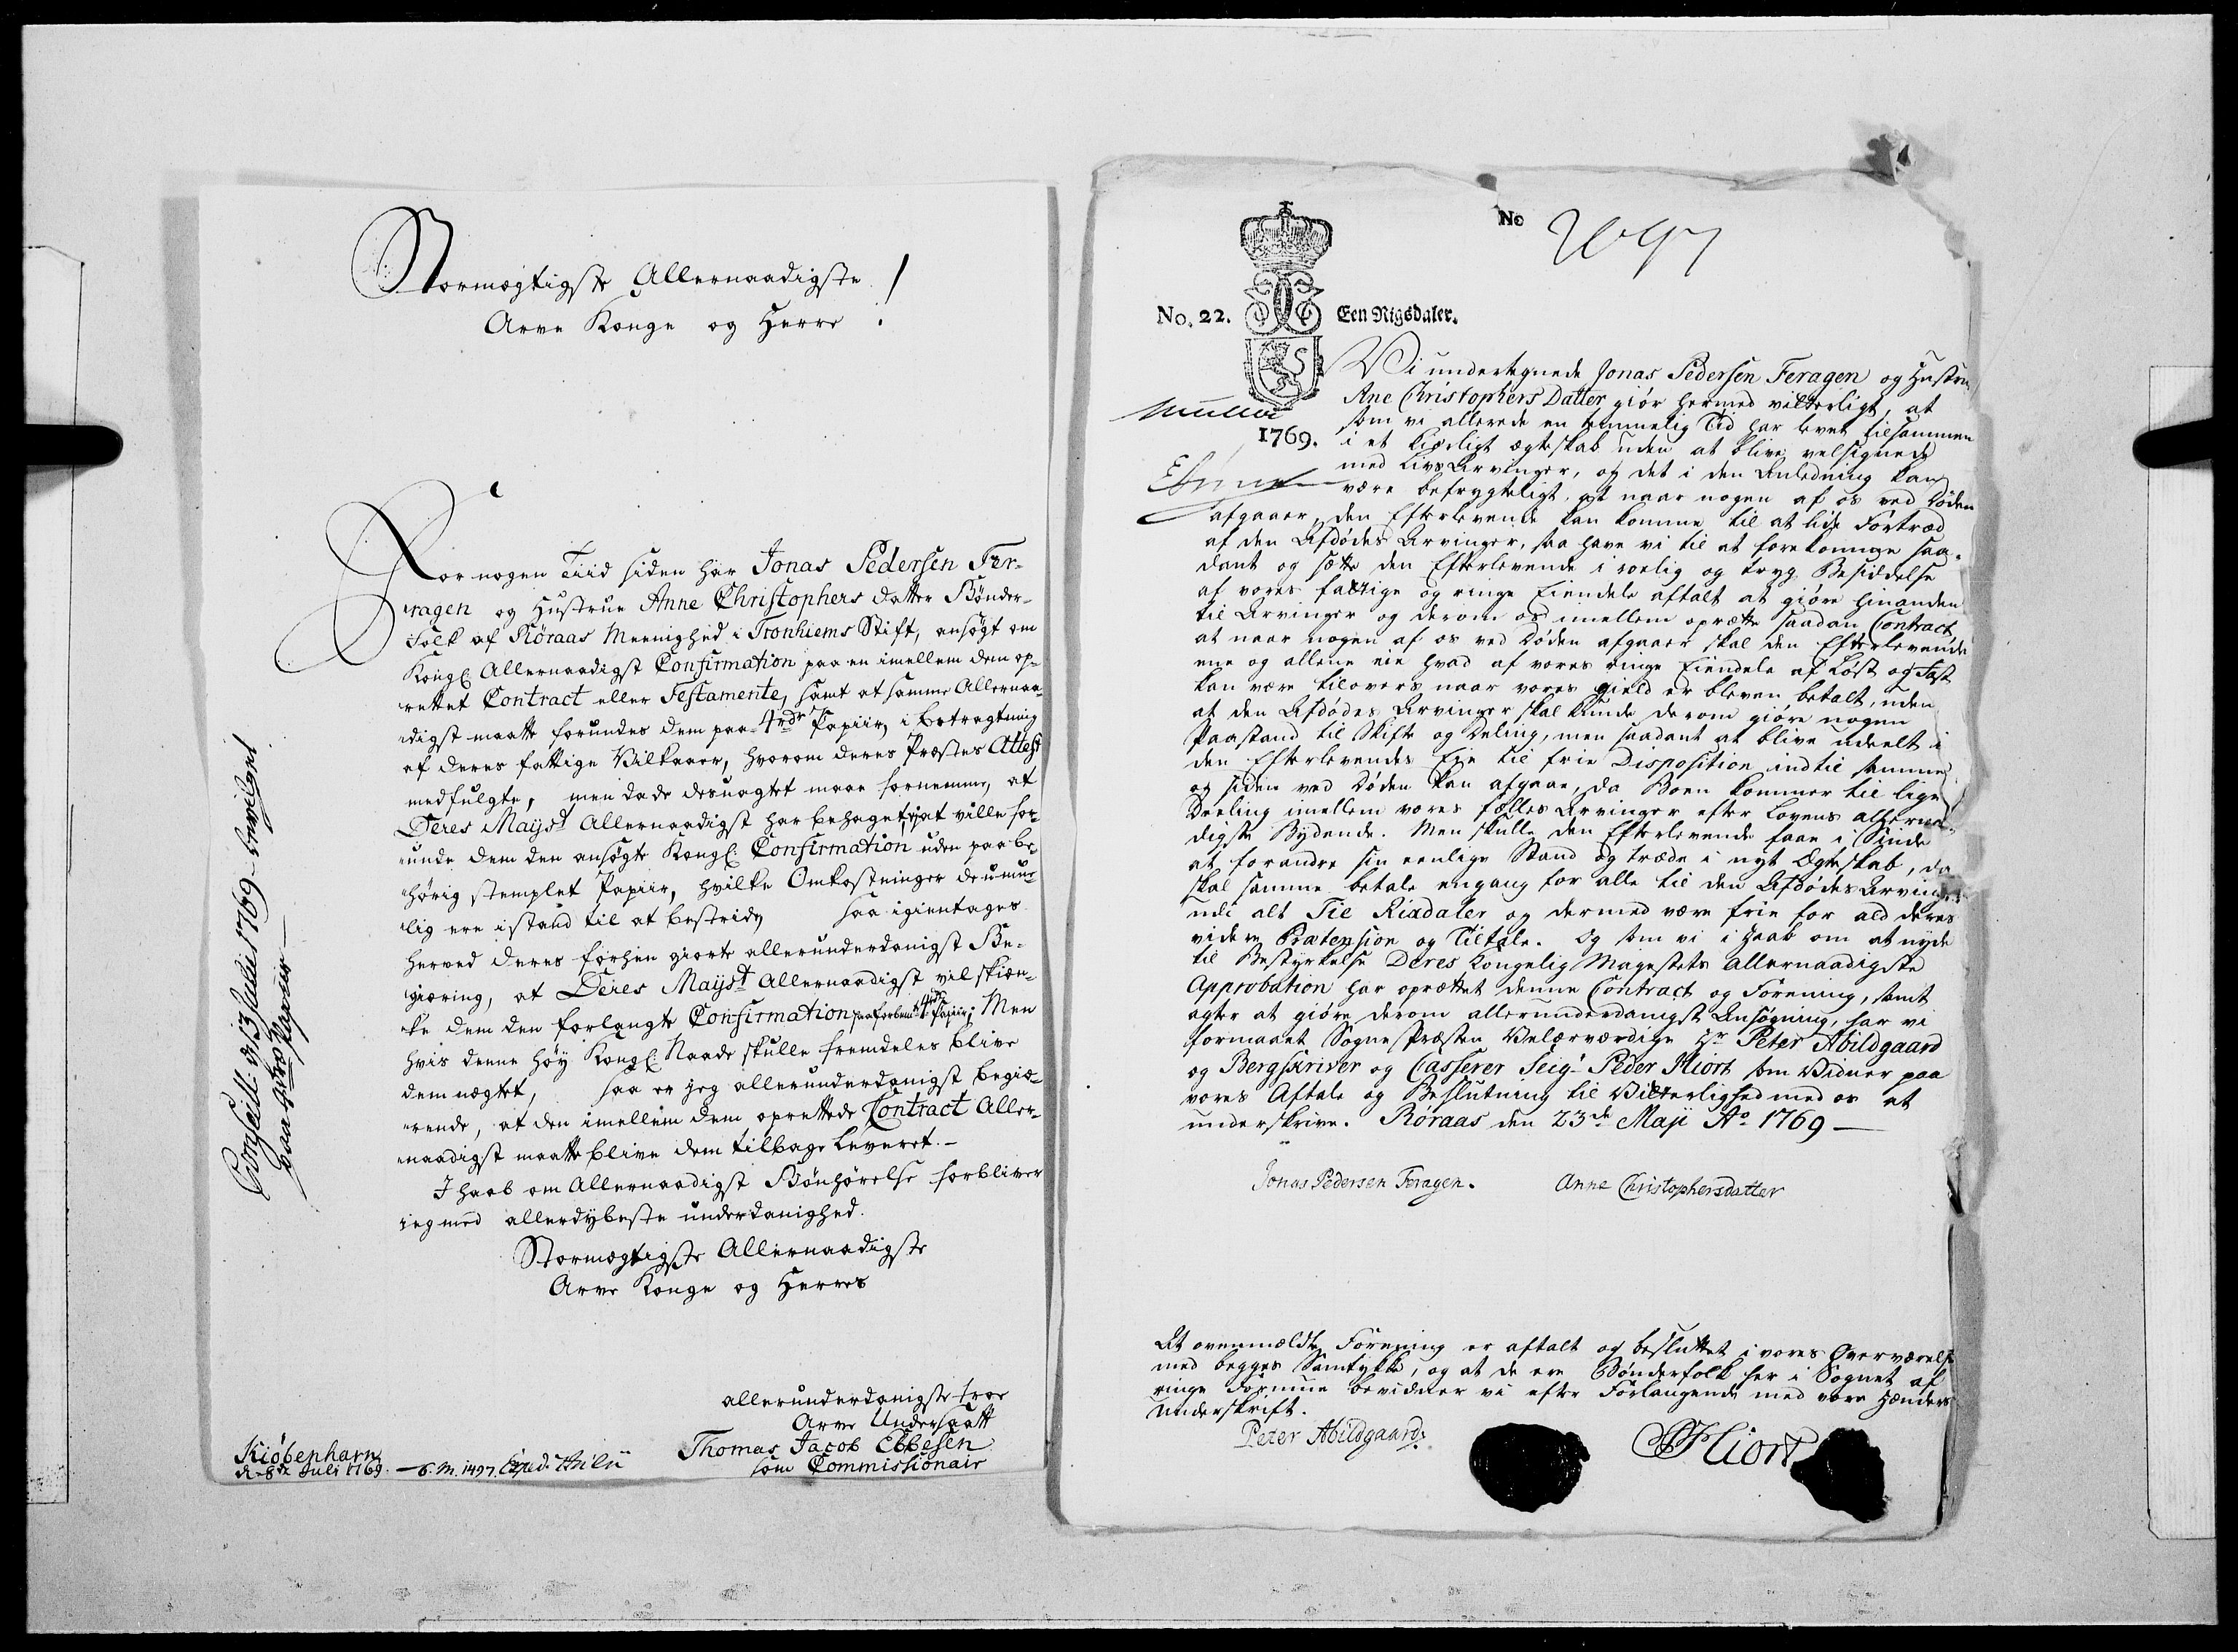 Stormægtigste Allernaadigste
Arve Konge og Herre!
For nogen Tiid siden har Jonas Pedersen Fer-
ragen og Hustrue Anne Christophers datter Bønder-
Folk af Röraas Meenighed i Tronhiems Stift, ansøgt om
Kongl: Allernaadigst Confirmation paa en imellem dem op-
rettet Contract eller Testamente, samt at samme Allernaa-
digst maatte forundes dem paa 4rdr Papiir, i betragtning
af deres fattige Vilkaarer, hvorom deres Præstes Attest
medfulgte, men da de desuagtet maae fornemme, at
Deres Mayst Allernaadigst har behaget, ej at ville for-
unde dem den ansøgte Kongl: Confirmation uden paa be-
hørig stemplet Papiir, hvilke Omkostninger de umue-
lig ere i stand til at bestride, saa igientages
herved deres forhen giorte allerunderdanigst Be-
giæring, at Deres Mayst Allernaadigst vil skiæn-
ke dem den forlangte Confirmation paa forbem:te 4rdr Papiir; Men
hvis denne høy Kongl: Naade skulle fremdeles blive
dem nægtet, saa er jeg allerunderdanigst begiæ-
rende, at den imellem dem oprettede Contract Aller-
naadigst maatte blive dem tilbage leveret.-
I haab om Allernaadigst Bønhørelse forbliver
jeg med allerdybeste underdanighed.
Stormægtigste Allernaadigste
Arve Konge og Herres
allerunderdanigste troe
Arve Undersaatt
Thomas Jacob Ebbesen
som Commissionair
Kiøbenhavn
d. 8de Juli 1769.
1497. Exped:
Conseill: d: 13 Julii 1769 bevilget
paa 4rdr Papiir
No
No. 22. Een Rigsdaler.
1769.
Vi undertegnede Jonas Pedersen Feragen og Hustru
Ane Christophers Datter giør hermed vitterligt, at
som vi allerede en temmelig Tid har levet tilsammen
i et kierligt ægteskab uden at blive velsignede
med Livs Arvinger, og det i den Anledning kan
være befrygteligt, at naar nogen af os ved Døden
afgaaer, den Efterlevende kan komme til at lide Fortræd
af den Afdødes Arvinger, saa have vi til at forekomme saa-
dant og sætte den Efterlevende i roelig og tryg Besiddelse
af vores fattige og ringe Eiendele aftalt at giøre hinanden
til Arvinger og derom os imellem oprette saadan Contract,
at naar nogen af os ved Døden afgaaer skal den Efterlevende
ene og allene eie hvad af vores ringe Eiendele af Løst og Fast
kan være tilovers naar vores Gield er bleven betalt, uden
at den Afdødes Arvinger skal kunde derom giøre nogen
Paastand til Skifte og Deling, men saadant at blive udeelt i
den Efterlevendes Eje til frie Disposition indtil samme
og siden ved Døden kan afgaae, da Boen kommer til lige
Deeling imellem vores fælles Arvinger efter Lovens allerna-
digste Bydende. Men skulle den Efterlevende faae i Sinde
at forandre sin eenlige Stand og træde i nyt Ægteskab, da
skal samme betale engang for alle til den Afdødes Arvinger
udi alt Tie Rixdaler og dermed være frie for ald deres
videre Prætension og Tiltale. Og som vi i Haab om at nyde
til Bestyrkelse Deres Kongelig Magestets Allernaadigste
Approbation har oprettet denne Contract og Forening, samt
agter at giøre derom allerunderdanigst Ansøgning, har vi
formaaet Sogne Præsten Velærværdige Hr Peter Abildgaard
og Bergskriver og Casserer Seigr Peder Hiort som Vidner paa
vores Aftale og Beslutning til Vitterlighed med os at
underskrive. Röraas den 23de Maji Ao 1769
Jonas Pedersen Feragen. Anne Christophersdatter
At ovenmældte Forening er aftalt og besluttet i vores Overværelse
med begges Samtykke, og at de ere Bønderfolk her i Sognet af
ringe Formue bevidner vi efter Forlangende med vore Hænders
Underskrift.
Peter Abildgaard. P Hiort